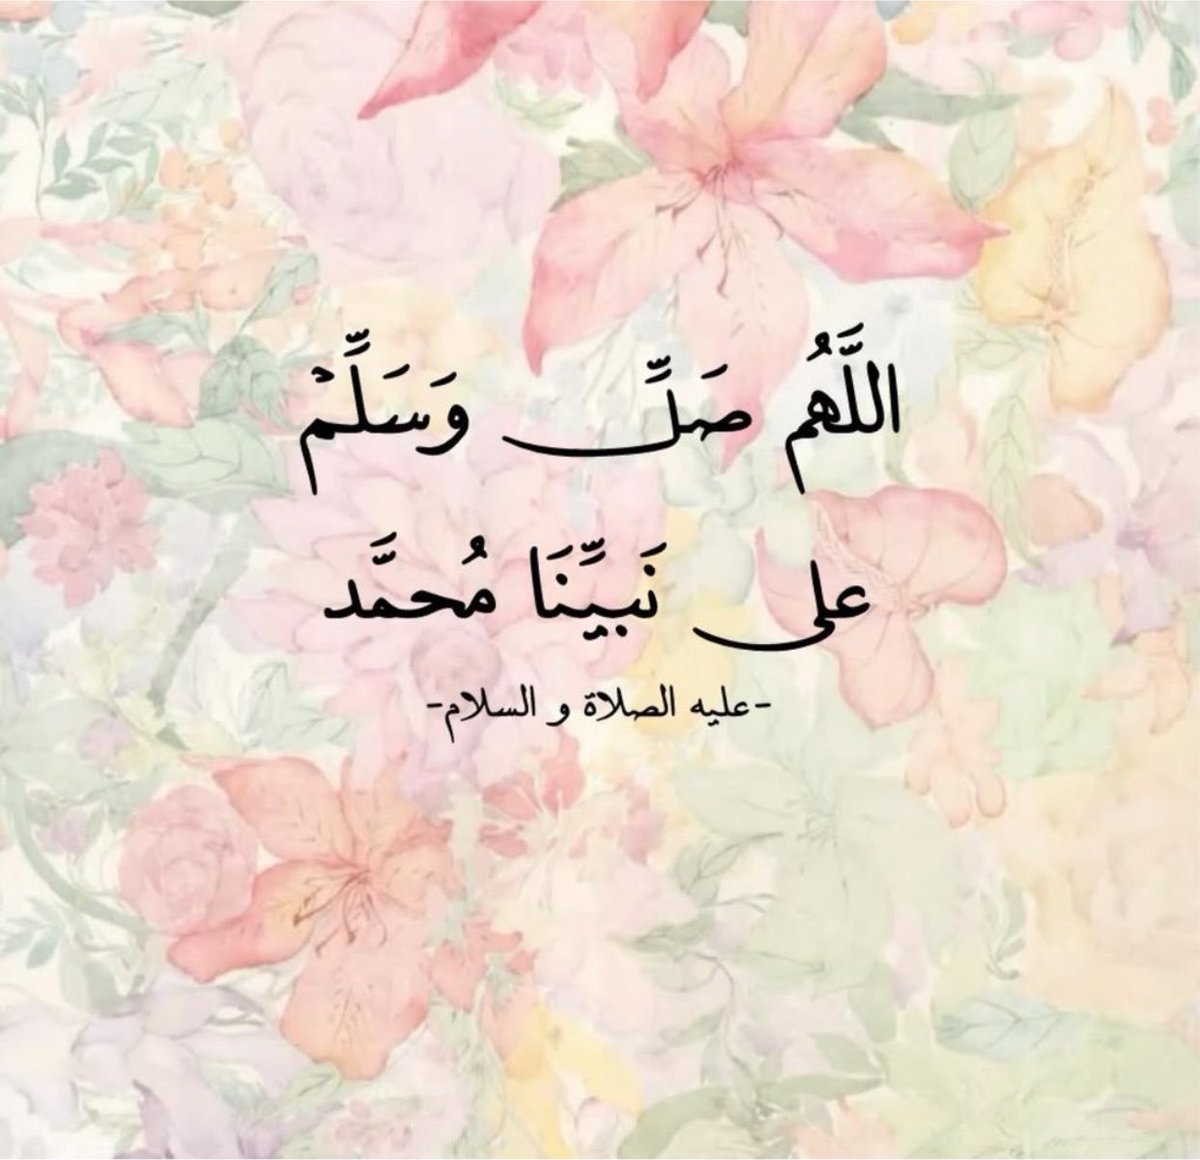 اللَّهُم صَلِّ وَسَلِّمْ
على نَبيِّنَا مُحمَّد
-عليه الصلاة و السلام-